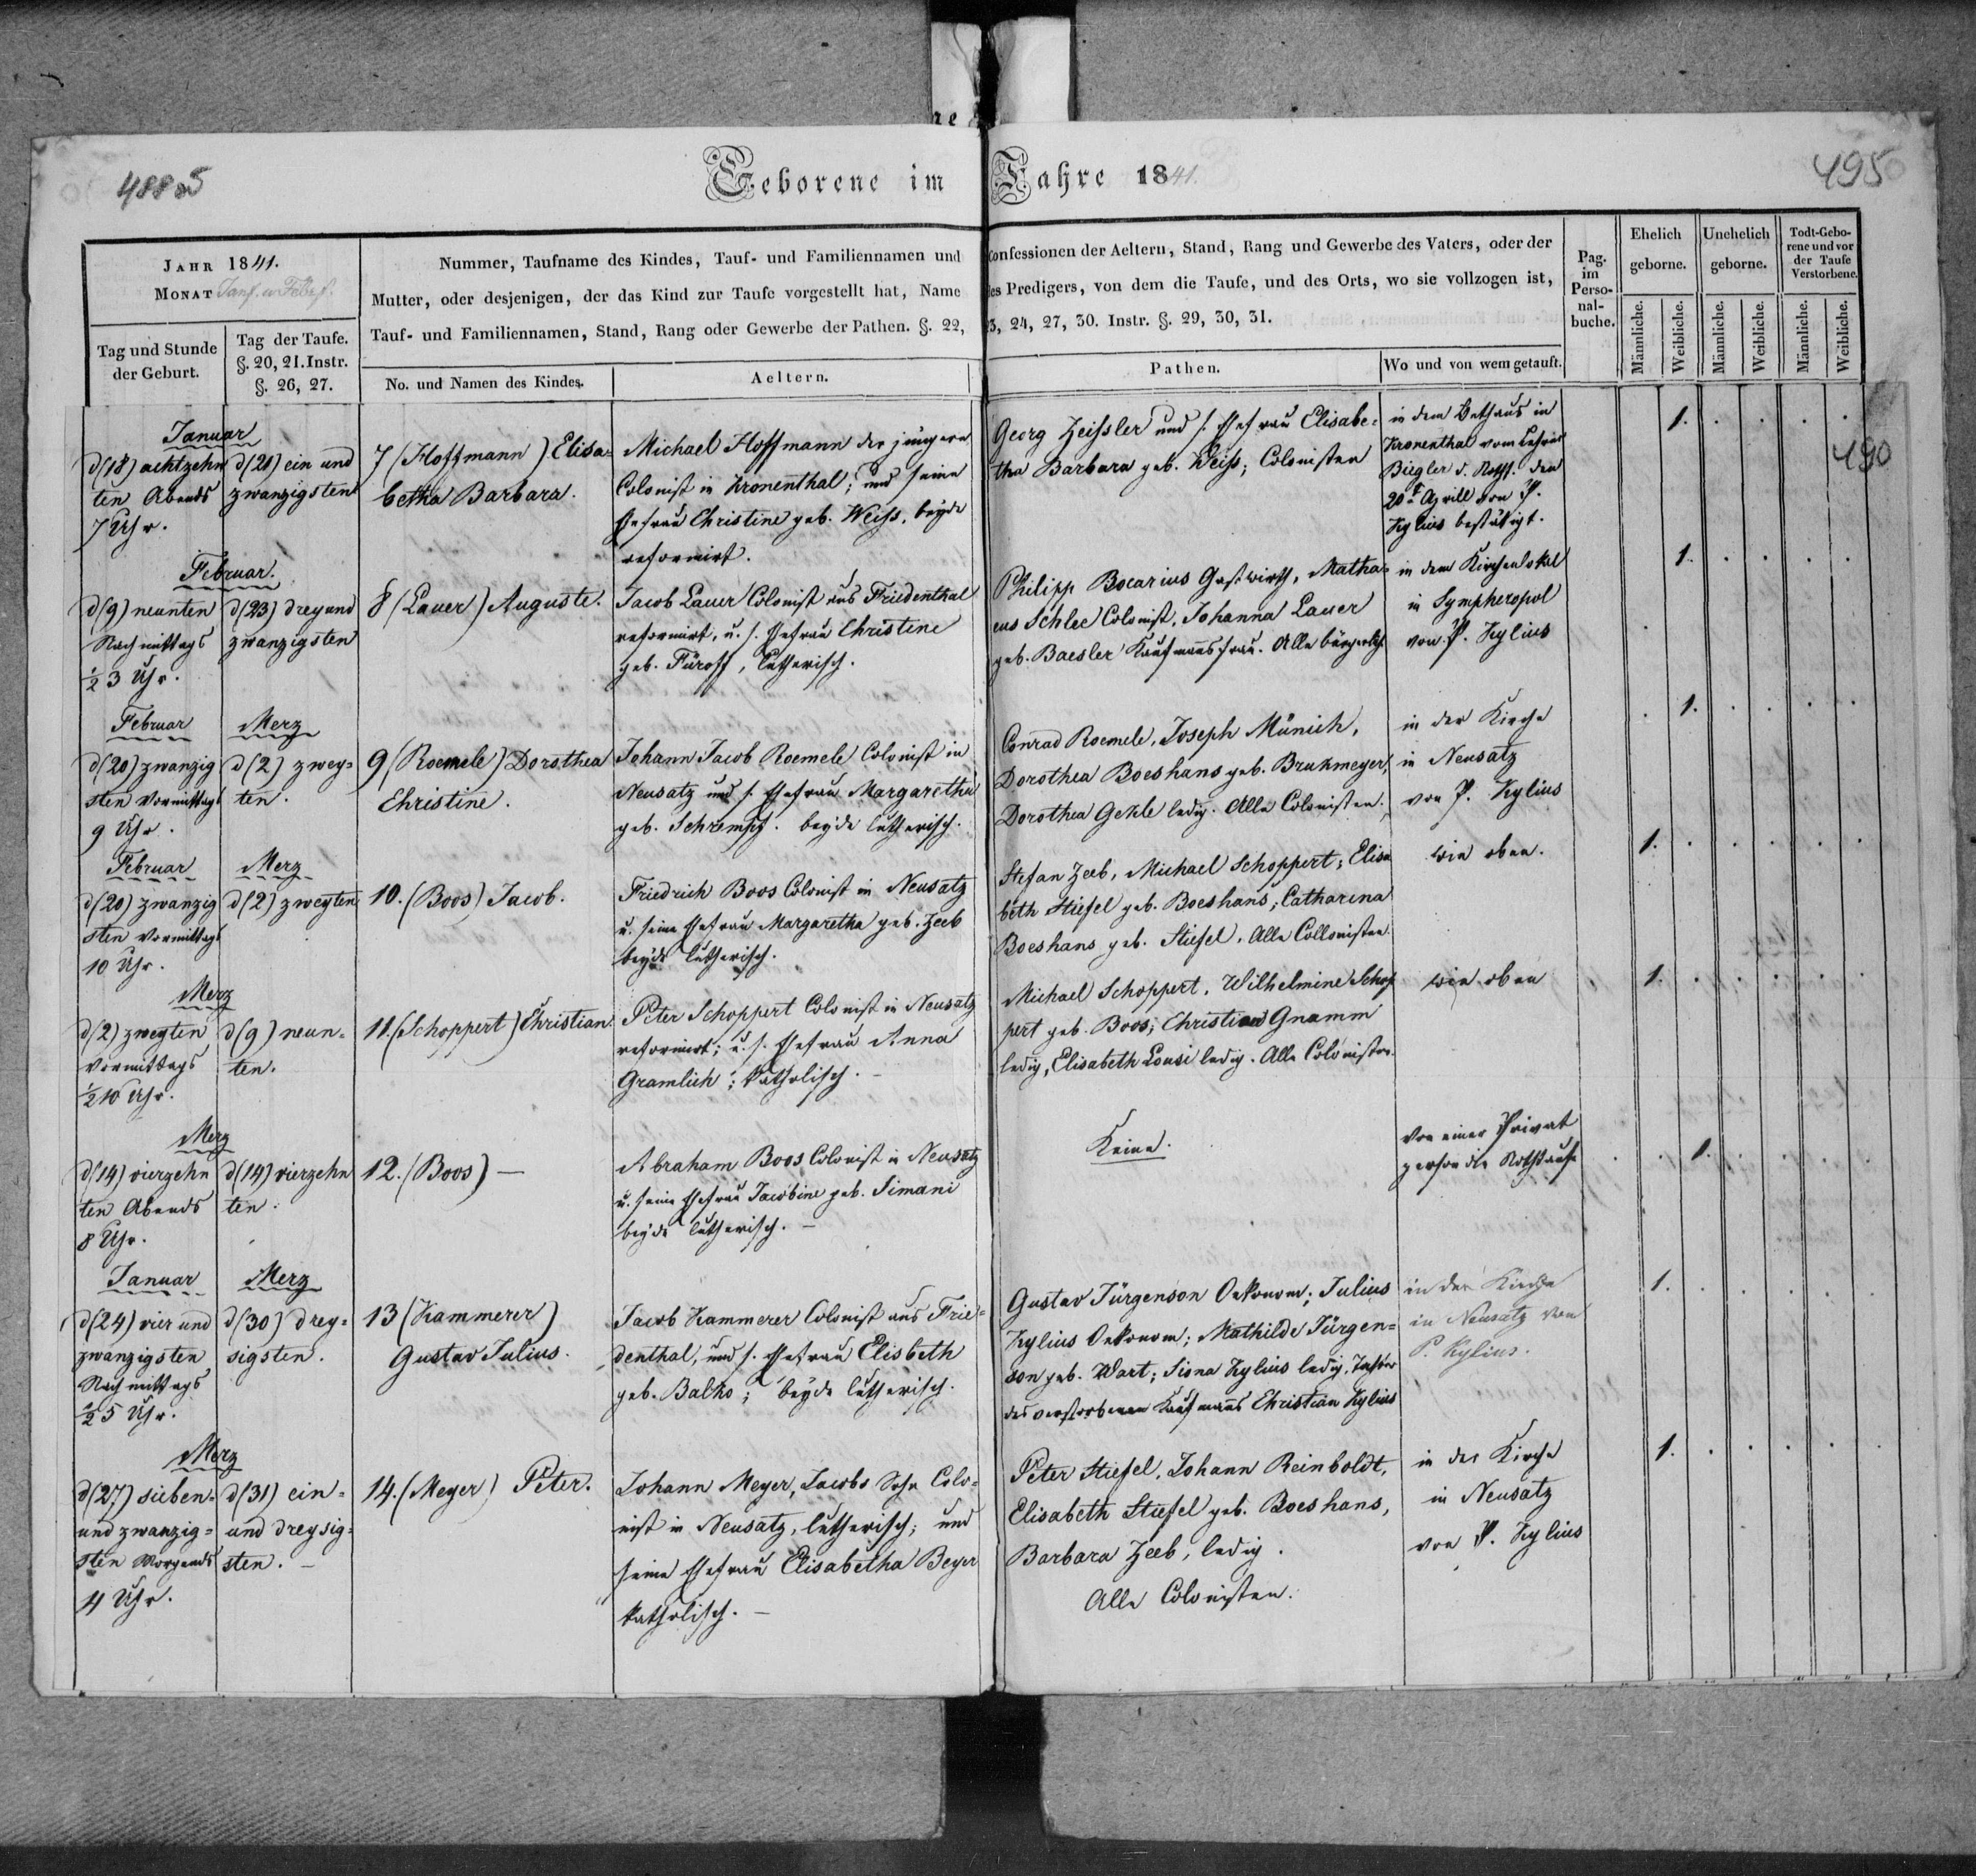 488
495
Geborene im Jahre 1841.
JAHR 1841.
MONAT
Tag und Stunde
der Geburt.
Tag der Taufe.
§. 20, 21. Instr.
§. 26, 27.
Nummer, Taufname des Kindes, Tauf- und Familiennamen und Confessionen der Aeltern, Stand, Rang und Gewerbe des Vaters, oder der
Mutter, oder desjenigen, der das Kind zur Taufe vorgestellt hat, Name des Predigers, von dem die Taufe, und des Orts, wo sie vollzogen ist,
Tauf- und Familiennamen, Stand, Rang oder Gewerbe der Pathen. §. 22, 23, 24, 27, 30. Instr. §. 29, 30, 31.
No. und Namen des Kindes.
Aeltern.
Pathen.
Wo und von wem getauft.
Pag.
im
Perso-
nal-
buche.
Ehelich
geborne.
Unehelich
geborne.
Todt-Gebo-
rene und vor
der Taufe
Verstorbene.
Männliche.
Weibliche.
Männliche.
Weibliche.
Männliche.
Weibliche.
490
Januar
d(18) achtzehn
ten Abends
7 Uhr.
d(21) ein und
zwanzigsten
7 (Hoffmann) Elisa-
betha Barbara.
Michael Hoffmann der jüngere
Colonist in Kronenthal; und seine
Ehefrau Christine geb. Weiss, beyde
reformirt.
Georg Zeissler und s. Ehefrau Elisabe-
tha Barbara geb. Weiss; Colonisten
in dem Bethaus in
Kronenthal vom Lehrer
Biegler d. Notht. den
20t Aprill von P.
Kylius bestätigt.
1.
Februar.
d(9) neunten
Nachmittags
½ 3 Uhr.
d(23) drey und
zwanzigsten
8 (Lauer) Auguste.
Jacob Lauer Colonist aus Friedenthal
reformirt, u. s. Ehefrau Christine
geb. Füroff, lutherisch.
Philipp Bocarius Gastwirth, Mathae-
us Schlee Colonist, Johanna Lauer
geb. Baesler Kaufmannsfrau. Alle bürgerlich
in dem Kirchenlokal
in Sympheropol
von P. Kylius
1.
Februar
d(20) zwanzig
sten Vormittags
9 Uhr.
Merz
d(2) zwey-
ten.
9 (Roemele) Dorothea
Christine.
Johann Jacob Roemele Colonist in
Neusatz und s. Ehefrau Margaretha
geb. Schrempf. beyde lutherisch.
Conrad Roemele, Joseph Münich,
Dorothea Boeshans geb. Brukmeyer,
Dorothea Gekle ledig. Alle Colonisten.
in der Kirche
in Neusatz
von P. Kylius
1.
Februar
d(20) zwanzig
sten Vormittags
10 Uhr.
Merz
d(2) zweyten
10. (Boos) Jacob.
Friedrich Boos Colonist in Neusatz
u. seine Ehefrau Margaretha geb. Zeeb
beyde lutherisch.
Stefan Zeeb, Michael Schoppert; Elisa
beth Stiefel geb. Boeshans; Catharina
Boeshans geb. Stiefel. Alle Collonisten.
wie oben.
1.
Merz
d(2) zweyten
Vormittags
½ 10 Uhr.
d(9) neun-
ten.
11. (Schoppert) Christian
Peter Schoppert Colonist in Neusatz
reformirt; u. s. Ehefrau Anna
Gramlich; katholisch.
Michael Schoppert, Wilhelmine Schop
pert geb. Boos; Christian Gnamm
ledig, Elisabeth Lousi ledig. Alle Colonisten.
wie oben
1.
Merz
d(14) vierzehn
ten Abends
8 Uhr.
d(14) vierzehn
ten.
12. (Boos) —
Abraham Boos Colonist in Neusatz
u. seine Ehefrau Jacobine geb. Simani
beyde lutherisch.
Keine.
von einer Privat
person die Nothtaufe
1.
Januar
d(24) vier und
zwanzigsten
Nachmittags
½ 5 Uhr.
Merz
d(30) drey-
sigsten.
13 (Kammerer)
Gustav Julius.
Jacob Kammerer Colonist aus Frie-
denthal, und s. Ehefrau Elisbeth
geb. Balko; beyde lutherisch.
Gustav Jürgenson Oekonom; Julius
Kylius Oekonom; Mathilde Jürgen-
son geb. Wart; Siona Kylius ledig, Tochter
des verstorbenen Kaufmanns Christian Kylius
in der Kirche
in Neusatz von
P. Kylius.
1.
Merz
d(27) sieben-
und zwanzig-
sten Morgends
4 Uhr.
d(31) ein-
und dreysig-
sten.
14. (Meyer) Peter.
Johann Meyer, Jacobs Sohn Colo-
nist in Neusatz, lutherisch; und
seine Ehefrau Elisabetha Beyer
katholisch.
Peter Stiefel, Johann Reinboldt,
Elisabeth Stiefel geb. Boeshans,
Barbara Zeeb, ledig.
Alle Colonisten.
in der Kirche
in Neusatz
von P. Kylius
1.